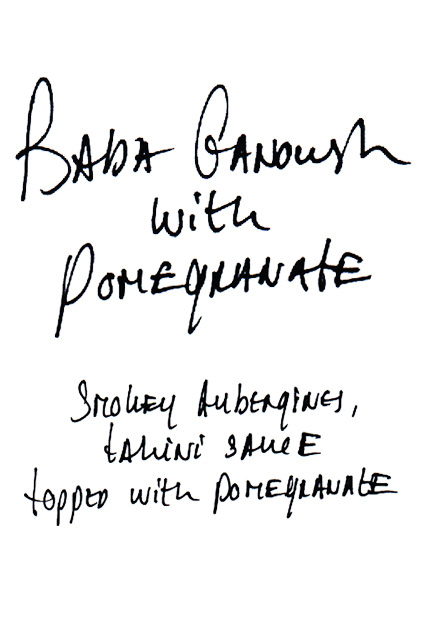 Baba Ganoush
with
Pomegranate
Smokey Aubergines,
tahini sauce
topped with pomegranate